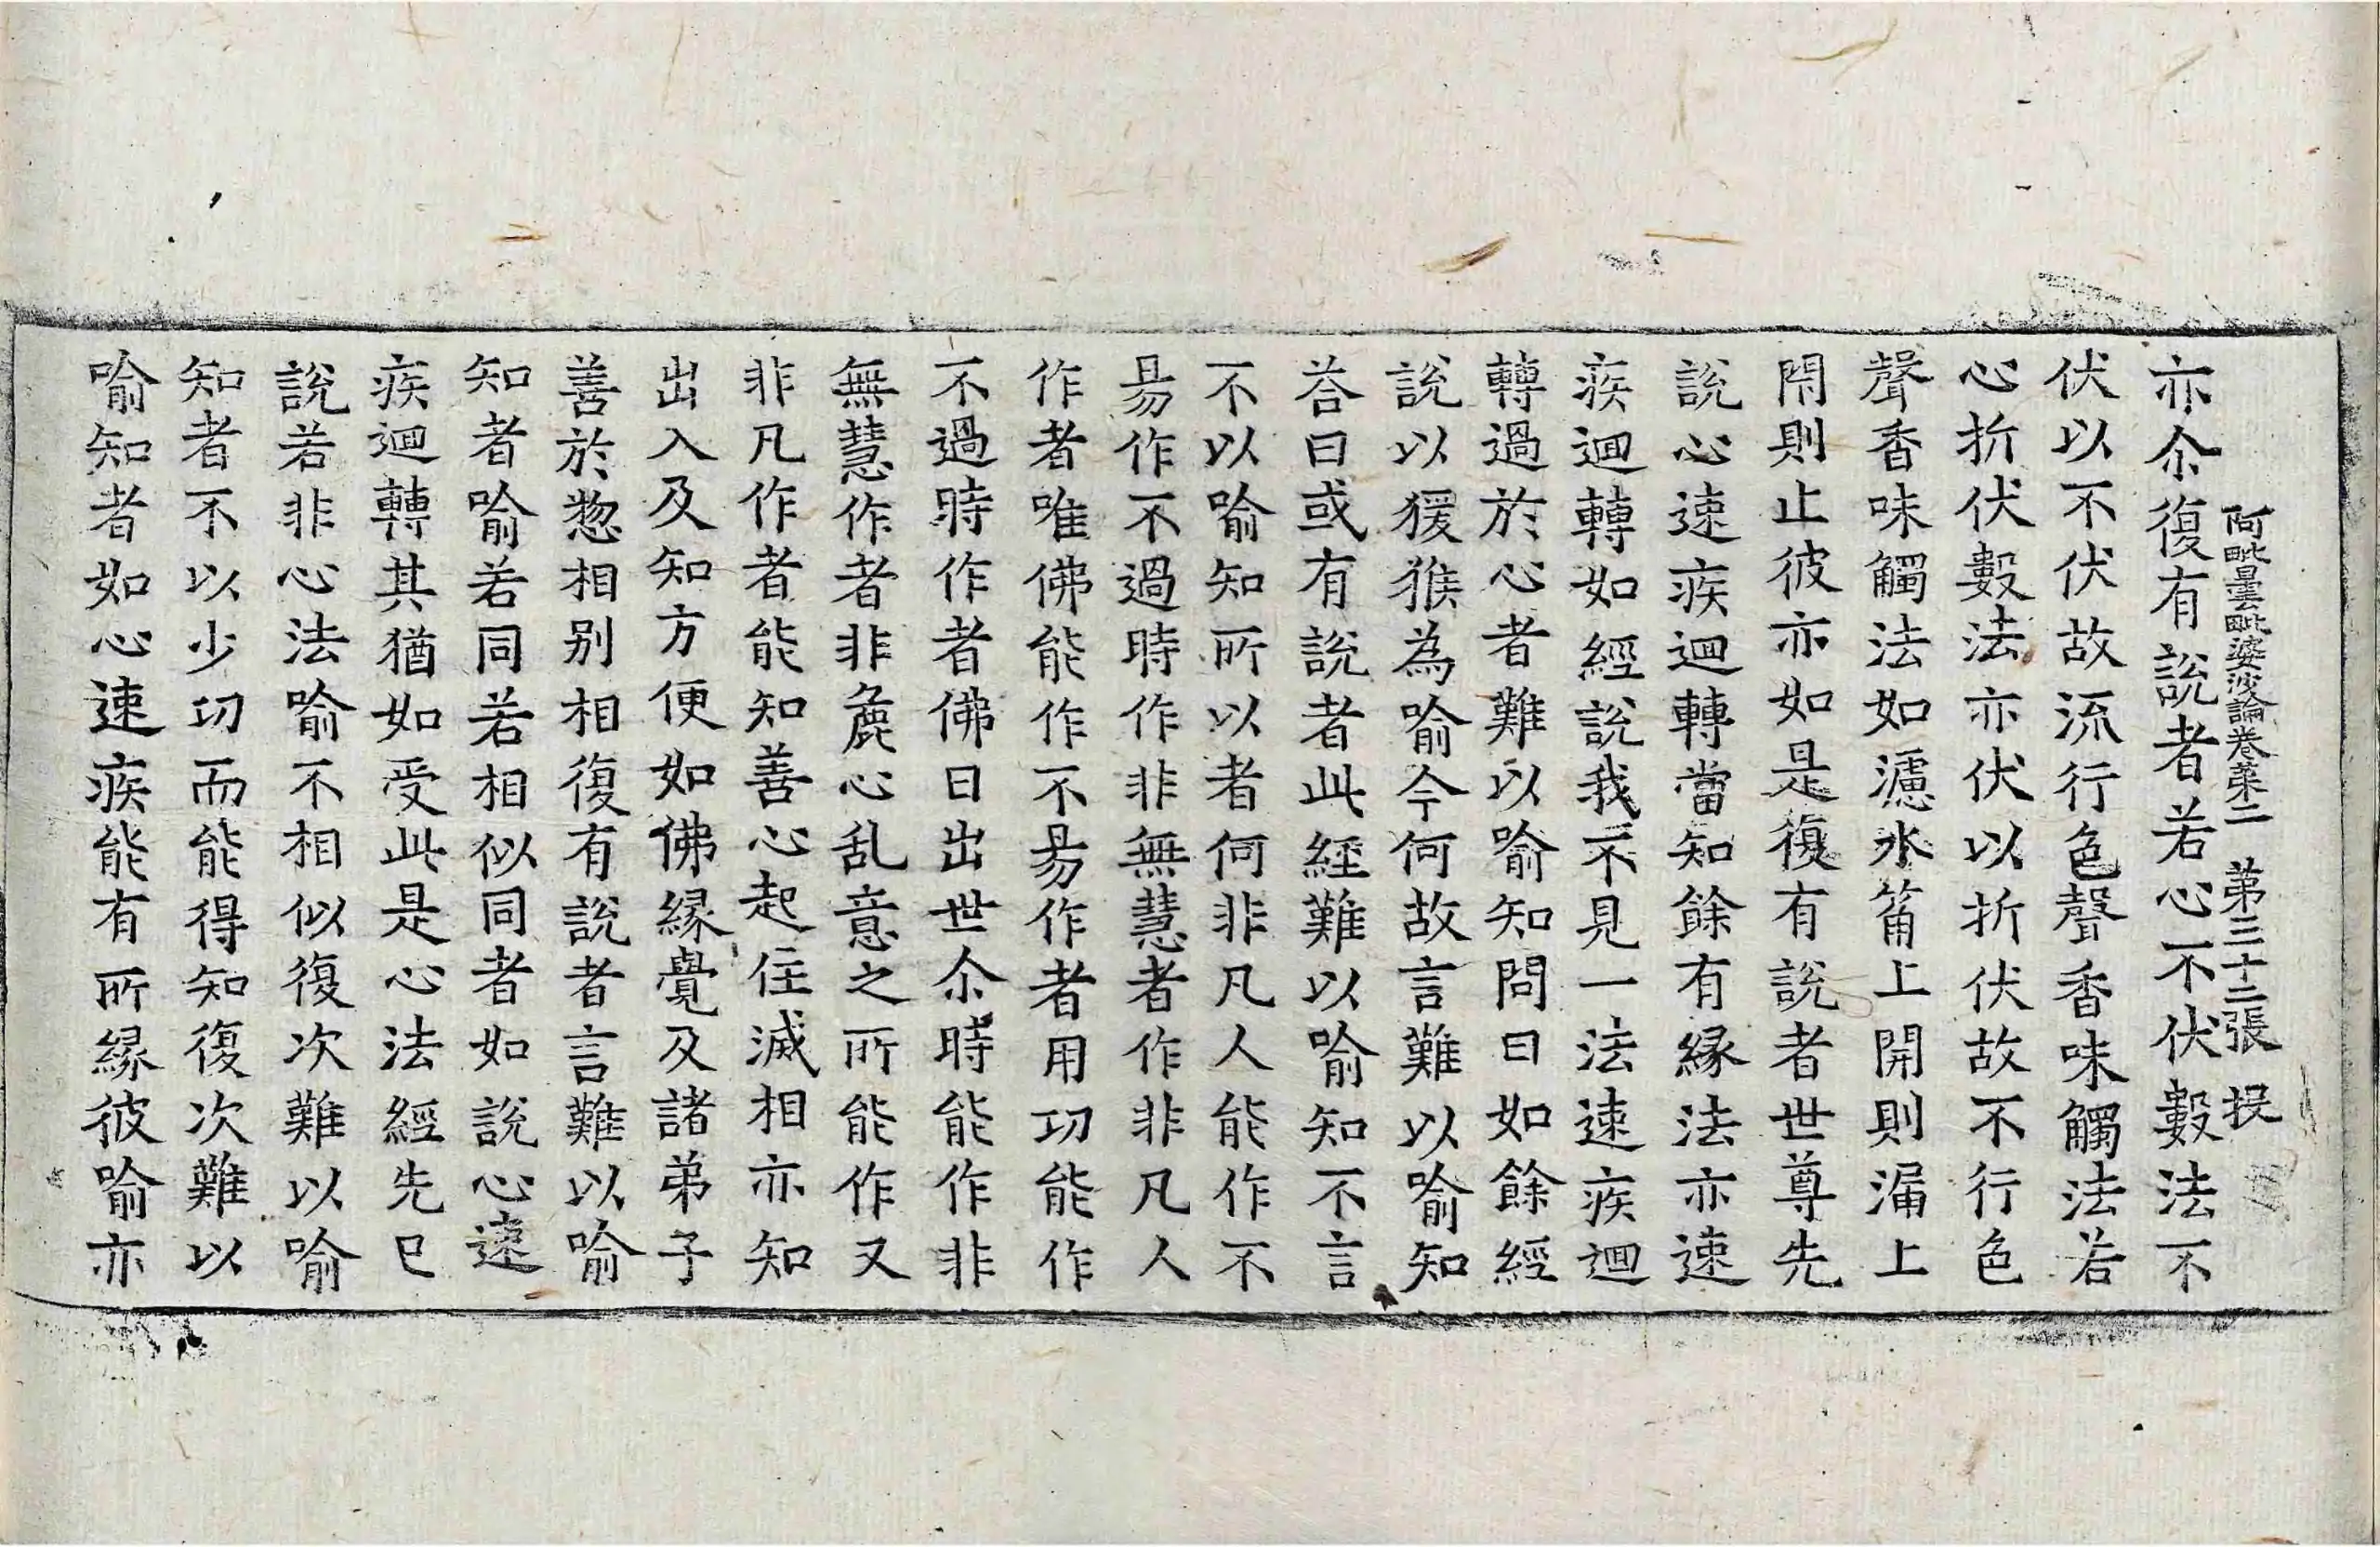 阿毗曇毗婆沙論卷第二　第三十二張　㧞
亦尒復有說者若心不伏數法不
伏以不伏故流行色聲香味觸法若
心折伏數法亦伏以折伏故不行色
聲香味觸法如濾水筩上開則漏上
閇則止彼亦如是復有說者世尊先
說心速疾迴轉當知餘有緣法亦速
疾迴轉如經說我不見一法速疾迴
轉過於心者難以喻知問曰如餘經
說以猨猴為喻今何故言難以喻知
荅曰或有說者此經難以喻知不言
不以喻知所以者何非凡人能作不
易作不過時作非無慧者作非凡人
作者唯佛能作不易作者用功能作
不過時作者佛日出世尒時能作非
無慧作者非麁心乱意之所能作又
非凡作者能知善心起住滅相亦知
出入及知方便如佛緣覺及諸弟子
善於惣相別相復有說者言難以喻
知者喻若同若相似同者如說心速
疾迴轉其猶如受此是心法經先已
說若非心法喻不相似復次難以喻
知者不以少功而能得知復次難以
喻知者如心速疾能有所緣彼喻亦